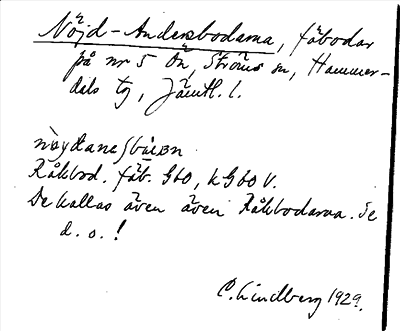 Nöjd-Andersbodarna, fäbodar
på nr 5 Ön, Ströms sn, Hammer-
dals tg, Jämtl. l.
Råkbod. fäb. G60, k G60 V.
De kallas även även Råkbodarna. Se
d. o.!
C. Lindberg 1929.